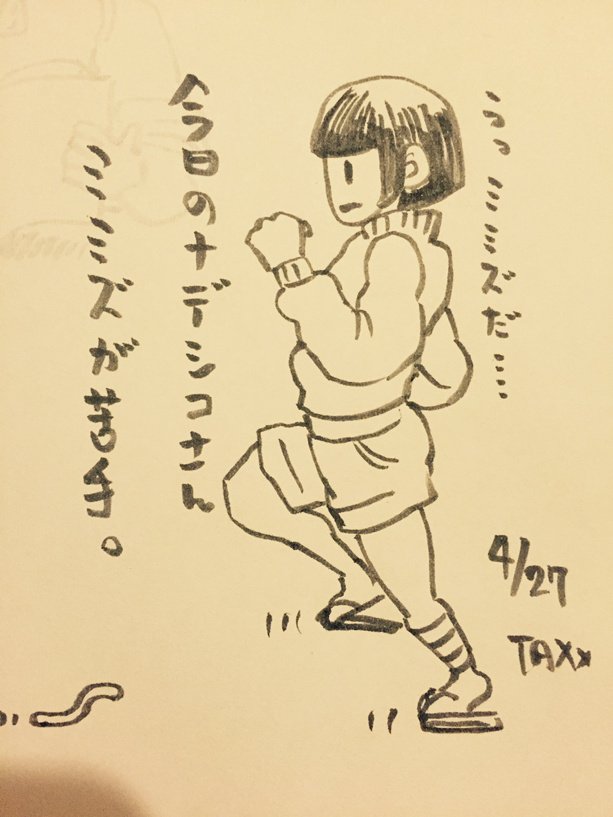 うっ ミミズだ……
今日のナデシコさん
ミミズが苦手。
4/27
TAXx